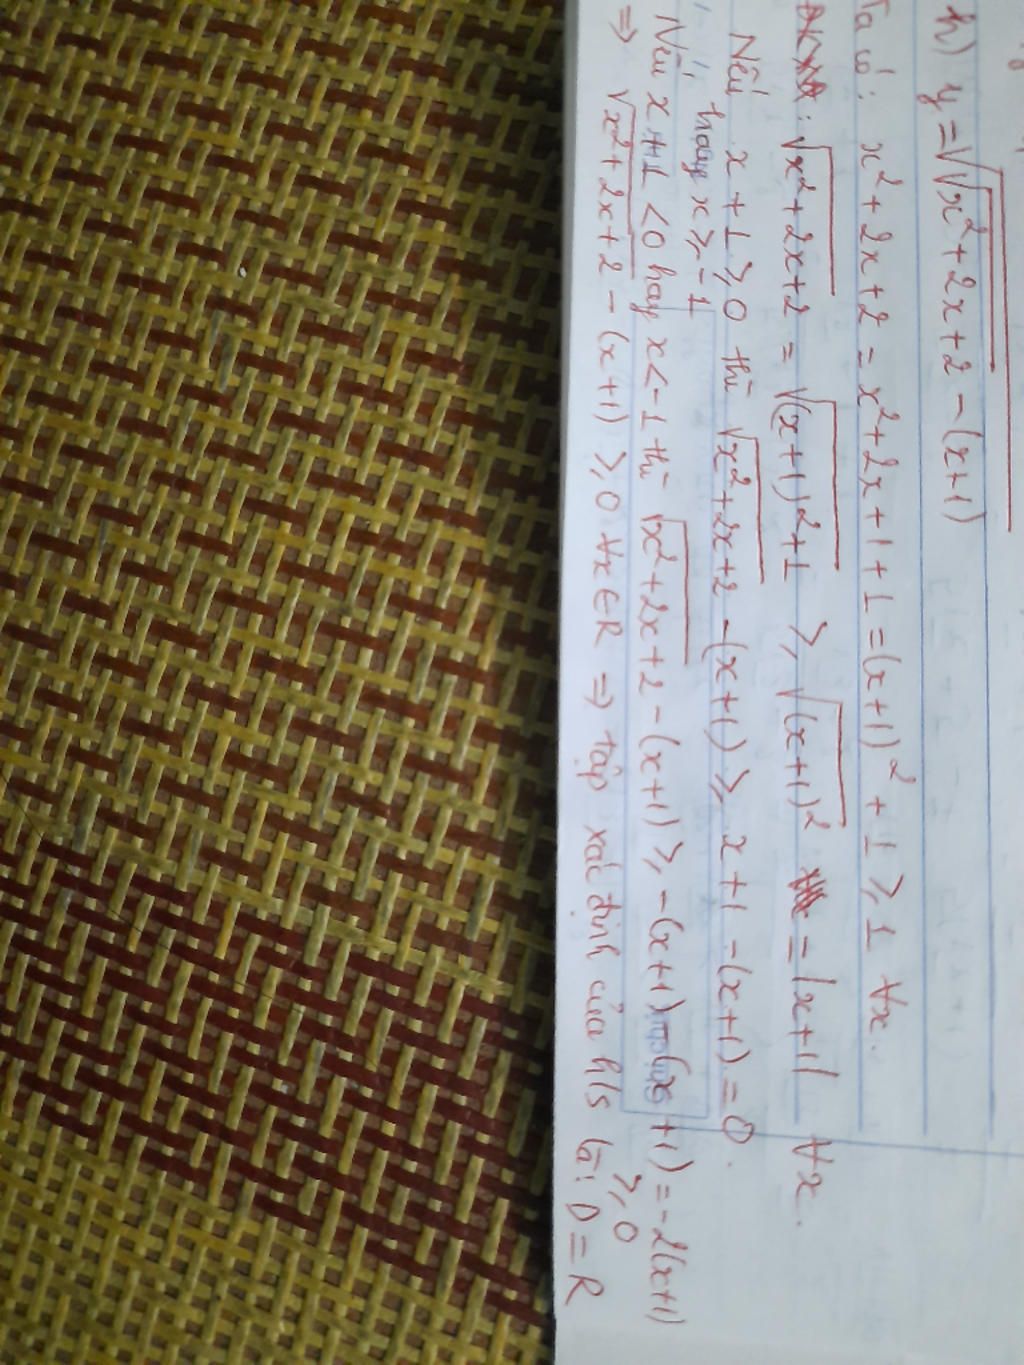 h) y = √(√(x² + 2x + 2) - (x+1))
Ta có: x² + 2x + 2 = x² + 2x + 1 + 1 = (x+1)² + 1 ≥ 1 ∀x.
: √(x² + 2x + 2) = √((x+1)² + 1) ≥ √((x+1)²) = |x+1| ∀x.
Nếu x + 1 ≥ 0 thì √(x² + 2x + 2) - (x+1) ≥ x + 1 - (x+1) = 0.
hay x ≥ -1
Nếu x + 1 < 0 hay x < -1 thì √(x² + 2x + 2) - (x+1) ≥ -(x+1) - (x+1) = -2(x+1)
≥ 0
⇒ √(x² + 2x + 2) - (x+1) ≥ 0 ∀x ∈ R ⇒ tập xác định của h/s là: D = R